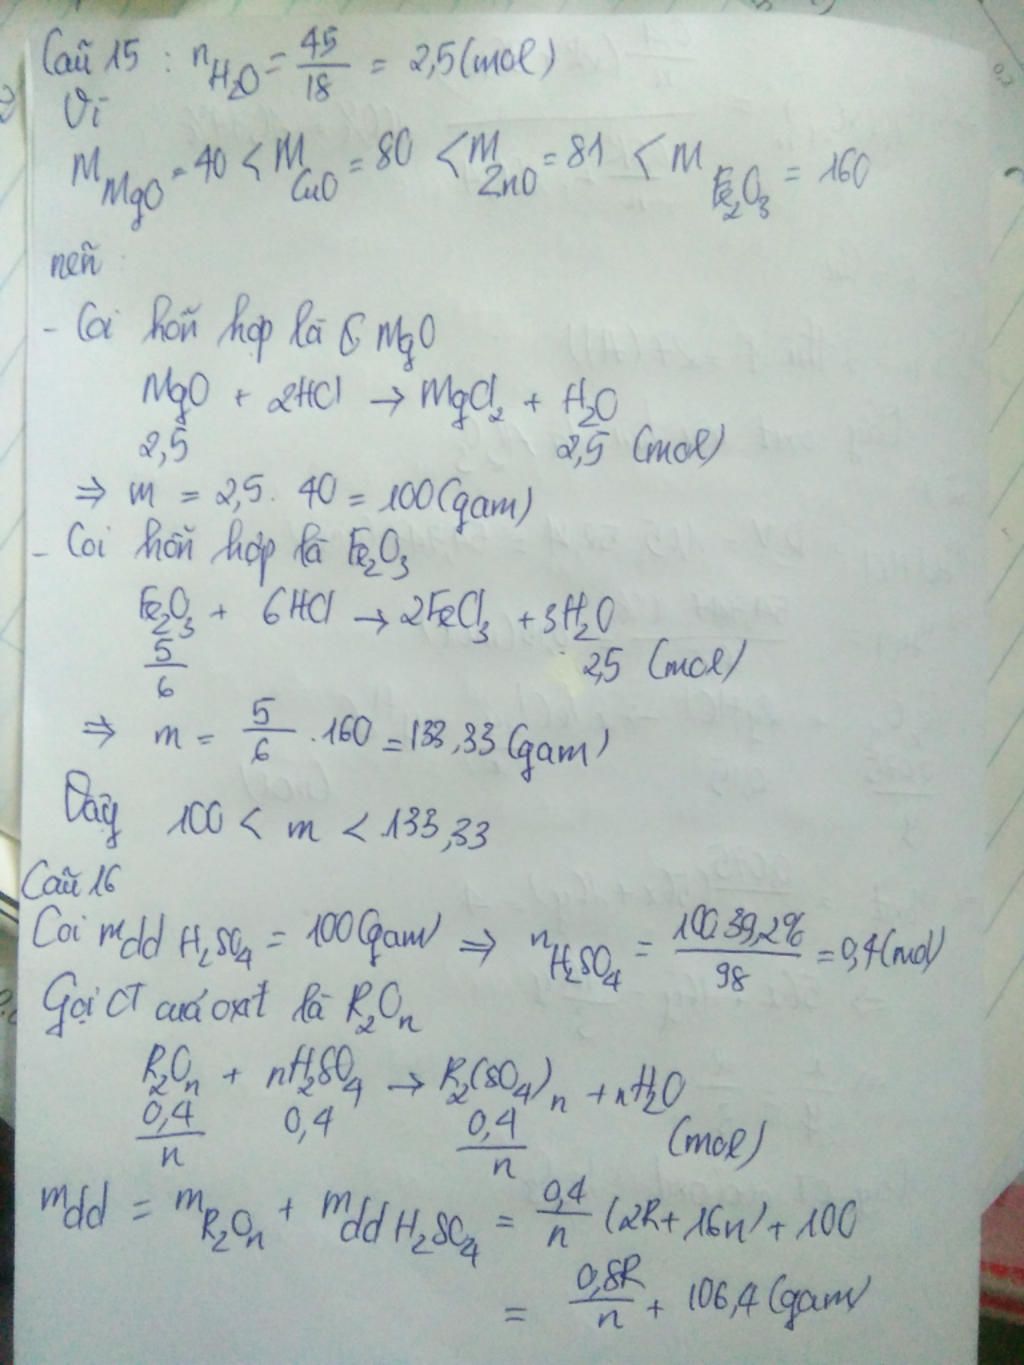 Câu 15 : nH₂O = 45/18 = 2,5 (mol)
Vì
M MgO = 40 < M CuO = 80 < M ZnO = 81 < M Fe₂O₃ = 160
nên :
- Coi hỗn hợp là MgO
MgO + 2HCl → MgCl₂ + H₂O
2,5 2,5 (mol)
⇒ m = 2,5 . 40 = 100 (gam)
- Coi hỗn hợp là Fe₂O₃
Fe₂O₃ + 6HCl → 2FeCl₃ + 3H₂O
5/6 2,5 (mol)
⇒ m = 5/6 . 160 = 133,33 (gam)
Vậy 100 < m < 133,33
Câu 16
Coi mdd H₂SO₄ = 100 (gam) ⇒ nH₂SO₄ = 100.39,2%/98 = 0,4 (mol)
Gọi CT của oxit là R₂Oₙ
R₂Oₙ + nH₂SO₄ → R₂(SO₄)ₙ + nH₂O
0,4/n 0,4 0,4/n (mol)
mdd = mR₂Oₙ + mdd H₂SO₄ = 0,4/n (2R + 16n) + 100
= 0,8R/n + 106,4 (gam)